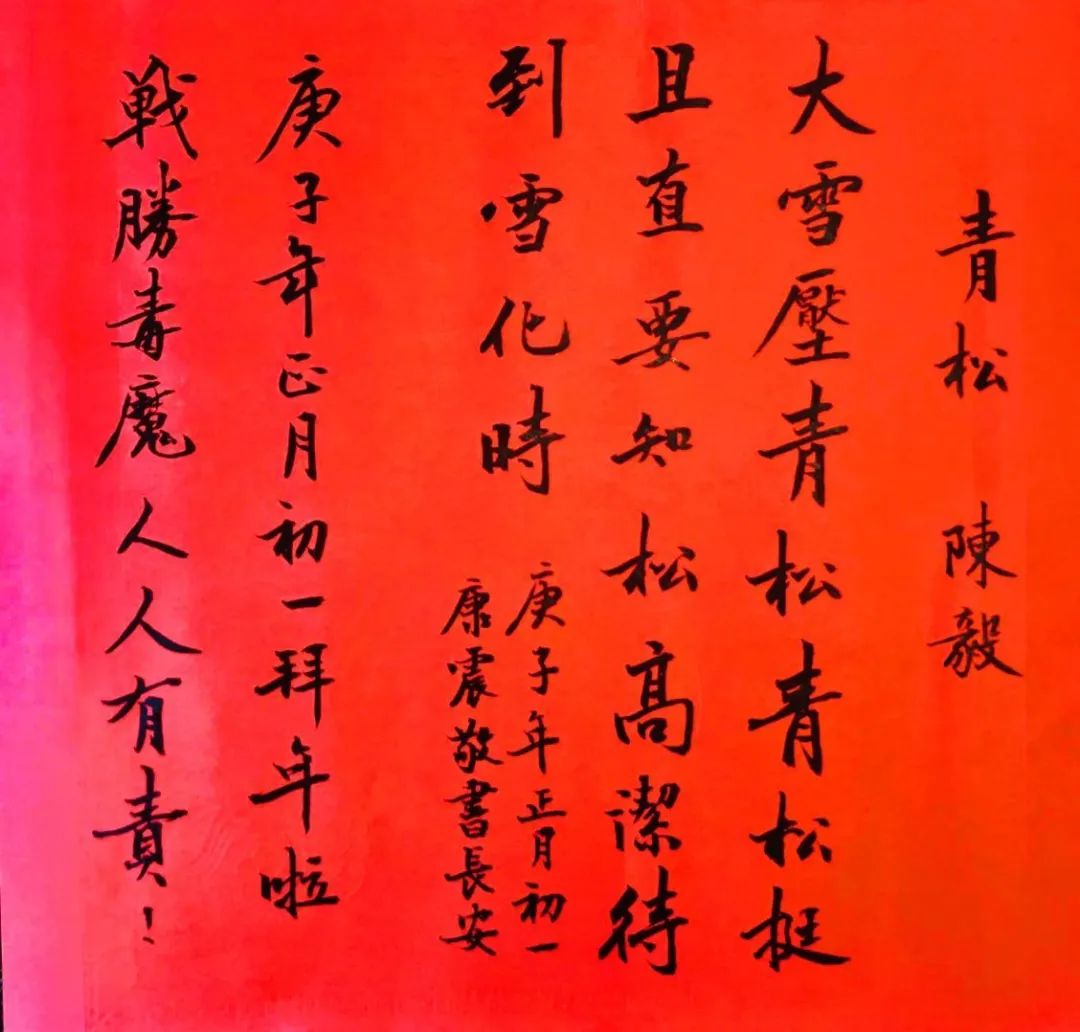 青松 陳毅
大雪壓青松青松挺
且直要知松高潔待
到雪化時
庚子年正月初一
康震敬書長安
庚子年正月初一拜年啦
戰勝毒魔人人有責！